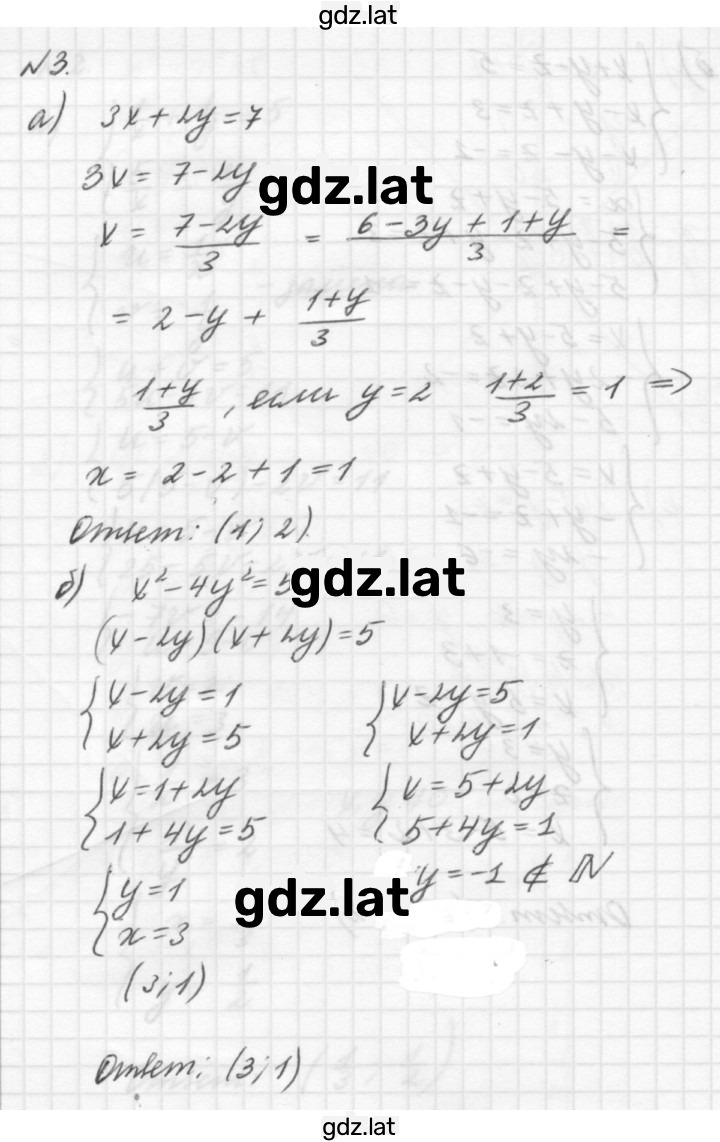 gdz.lat
N3.
а) 3x+2y=7
3x = 7-2y
gdz.lat
x = \frac{7-2y}{3} = \frac{6-3y+1+y}{3} =
= 2-y + \frac{1+y}{3}
\frac{1+y}{3}, если y=2 \frac{1+2}{3} = 1 =>
x = 2-2+1=1
Ответ: (1; 2)
б) x²-4y²=5
gdz.lat
(x-2y)(x+2y)=5
{x-2y=1 {x-2y=5
x+2y=5 x+2y=1
{x=1+2y {x=5+2y
1+4y=5 5+4y=1
{y=1 y=-1 ∉ ℕ
gdz.lat
x=3
(3;1)
Ответ: (3;1)
gdz.lat